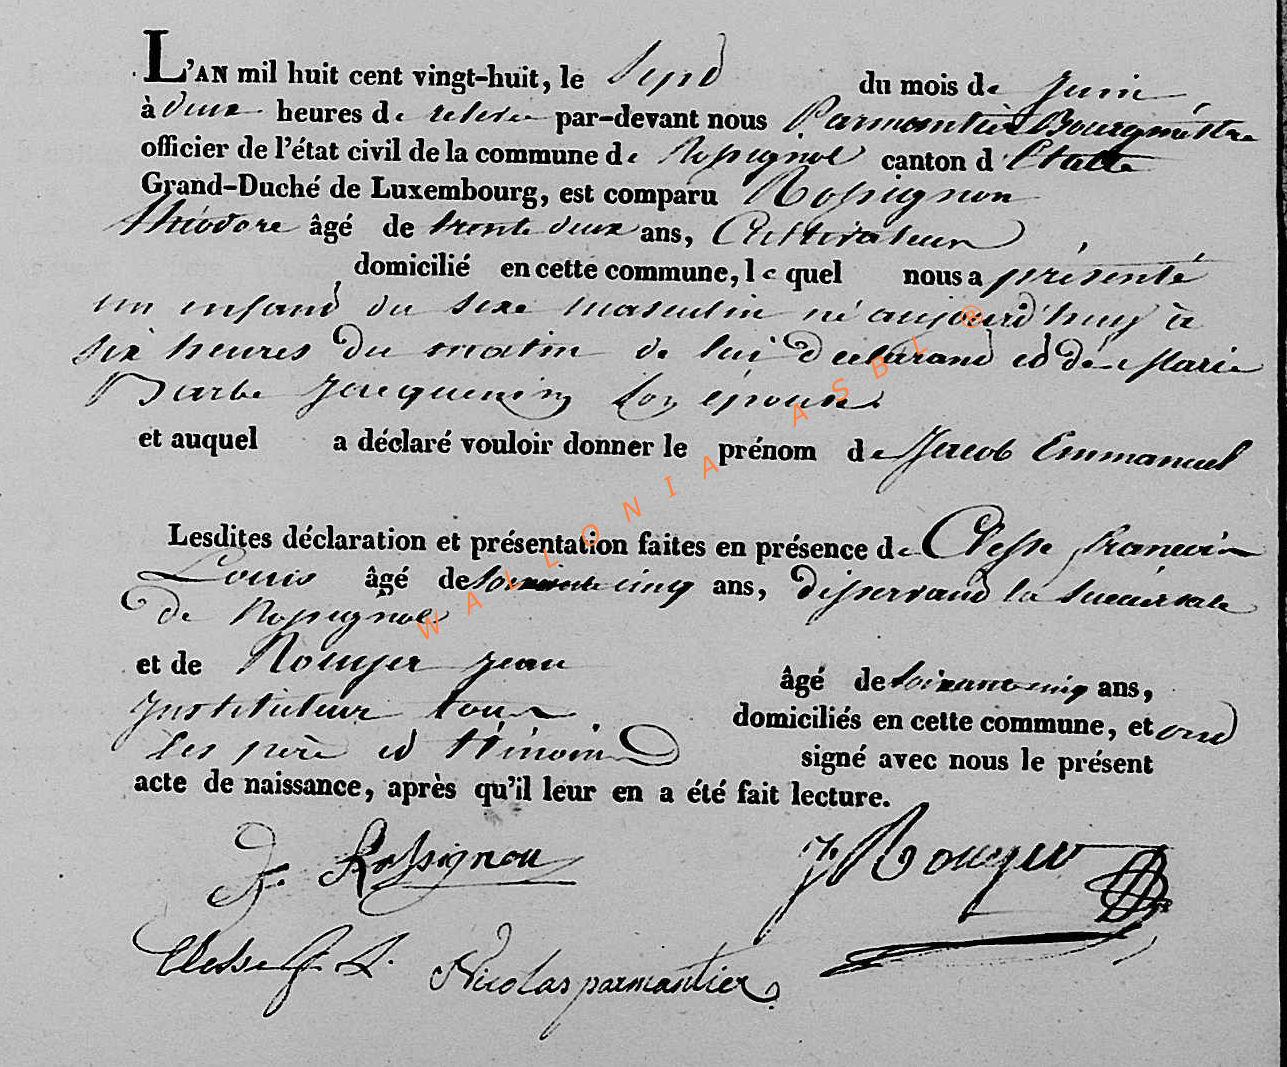 L'AN mil huit cent vingt-huit, le Sept du mois de Juin
à deux heures de relevée par-devant nous Parmentier Bourgmestre
officier de l'état civil de la commune de Rossignol canton d'Etalle
Grand-Duché de Luxembourg, est comparu Rossignon
théodore âgé de trente deux ans, Cultivateur
domicilié en cette commune, lequel nous a présenté
un enfant du sexe masculin né aujourd'huy à
six heures du matin de lui déclarant et de Marie
Barbe Jacquemin son épouse.
et auquel a déclaré vouloir donner le prénom de Jacob Emmanuel
Lesdites déclaration et présentation faites en présence de Clesse francois
Louis âgé de cinq ans, desservant la succursale
de Rossignol
et de Rouger jean âgé de soixante cinq ans,
Instituteur tous domiciliés en cette commune, et ont
les père et témoins signé avec nous le présent
acte de naissance, après qu'il leur en a été fait lecture.
Rossignon
J Rouger
Clesse f. L.
Nicolas parmantier
WALLONIA ASBL ®